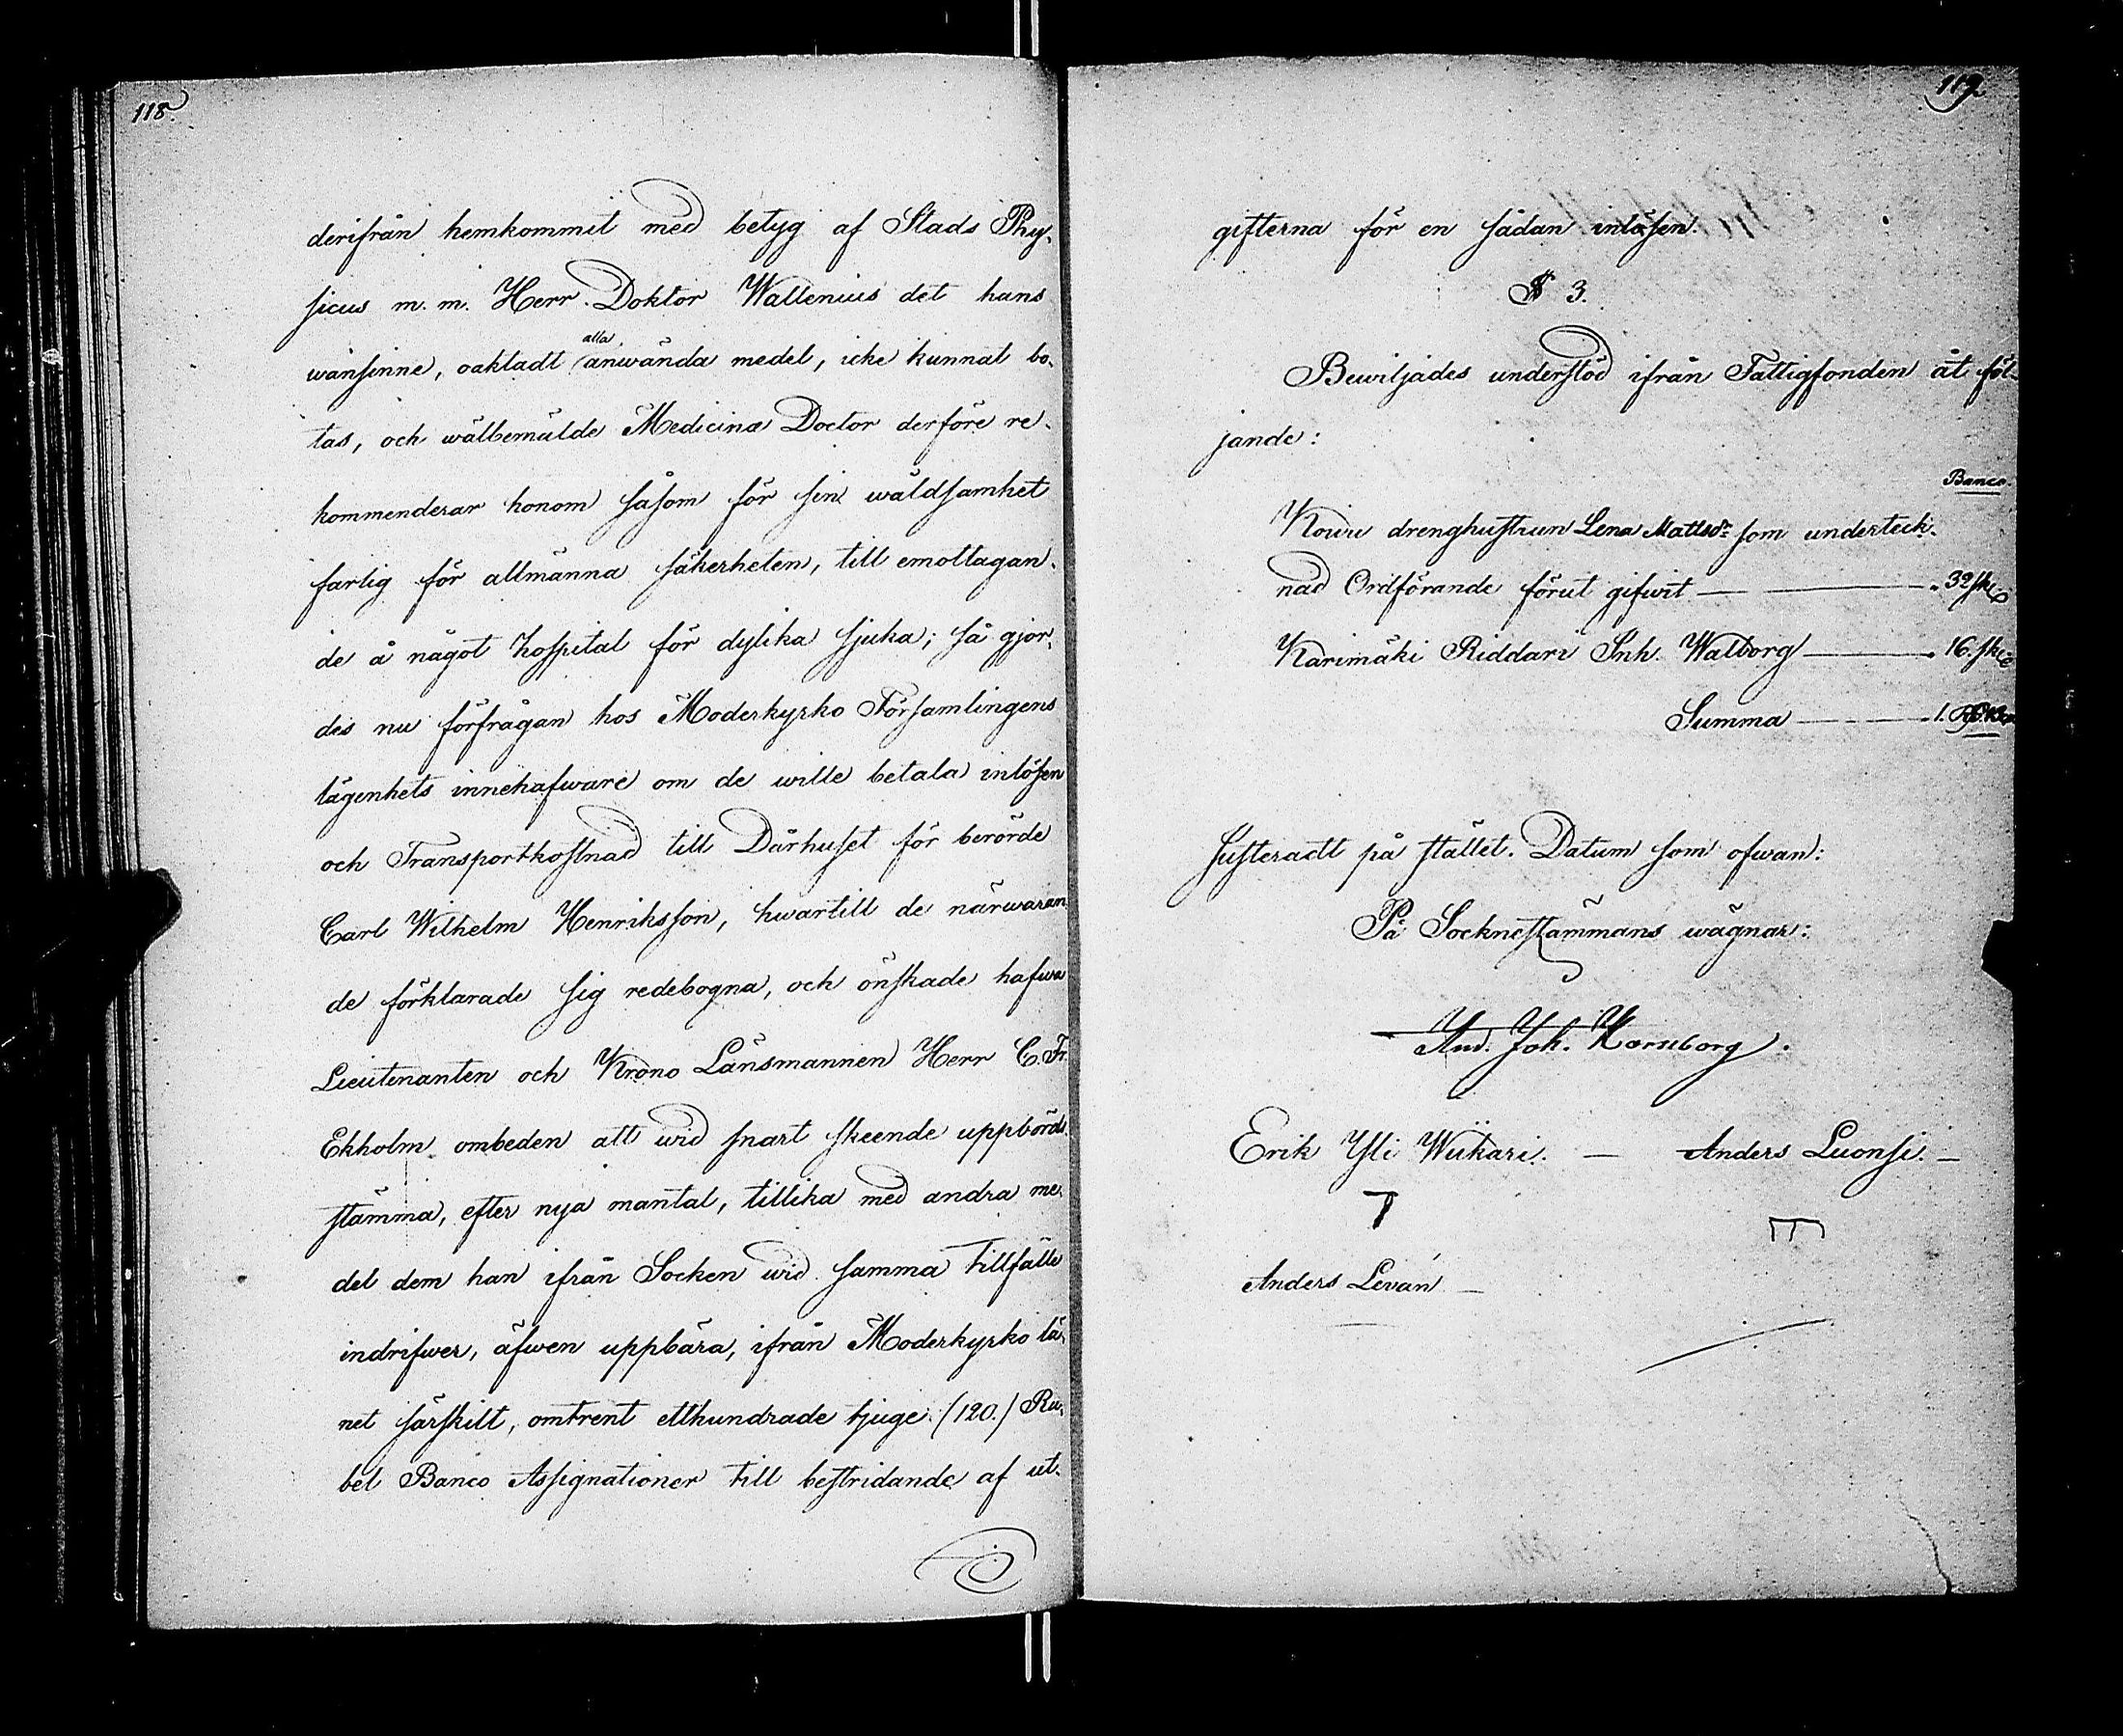 118.
derifrån hemkommit med betyg af Stads Phy-
sicus m. m. Herr Doktor Wallenius det hans
wansinne, oaktadt alla anwända medel, icke kunnat bo-
tas, och wälbemälde Medicinæ Doctor derföre re-
kommenderar honom såsom för sin wåldsamhet
farlig för allmänna säkerheten, till emottagan-
de å något hospital för dylika sjuka; så gjor-
des nu förfrågan hos Moderkyrko Församlingens
lägenhets innehafware om de wille betala inlösen
och Transportkostnad till Dårhuset för berörde
Carl Wilhelm Henriksson, hwartill de närwaran-
de förklarade sig redebogna, och önskade hafwa
Lieutenanten och Krono Länsmannen Herr C. Fr.
Ekholm ombeden att wid snart skeende uppbörds-
stämma, efter nya mantal, tillika med andra me-
del dem han ifrån Socken wid samma tillfälle
indrifwer, äfwen uppbära, ifrån Moderkyrko lä-
net särskilt, omtrent etthundrade tjuge (120.) Ru-
bel Banco Assignationer till bestridande af ut-
119
gifterna för en sådan inlösen.
§ 3.
Bewiljades understöd ifrån Fattigfonden åt föl-
jande:
Banco.
Koiwu drenghustrun Lena Mattsdr som underteck-
nad Ordförande förut gifwit — — 32 sk
Karimäki Riddari Inh. Walborg — 16. sk
Summa — 1. Rd. Bco
Justeradt på stället. Datum som ofwan:
På Sockneštämmans wägnar:
And. Joh. Kornborg.
Erik Yli Wiikari. — Anders Luonsi. —
Anders Levan —